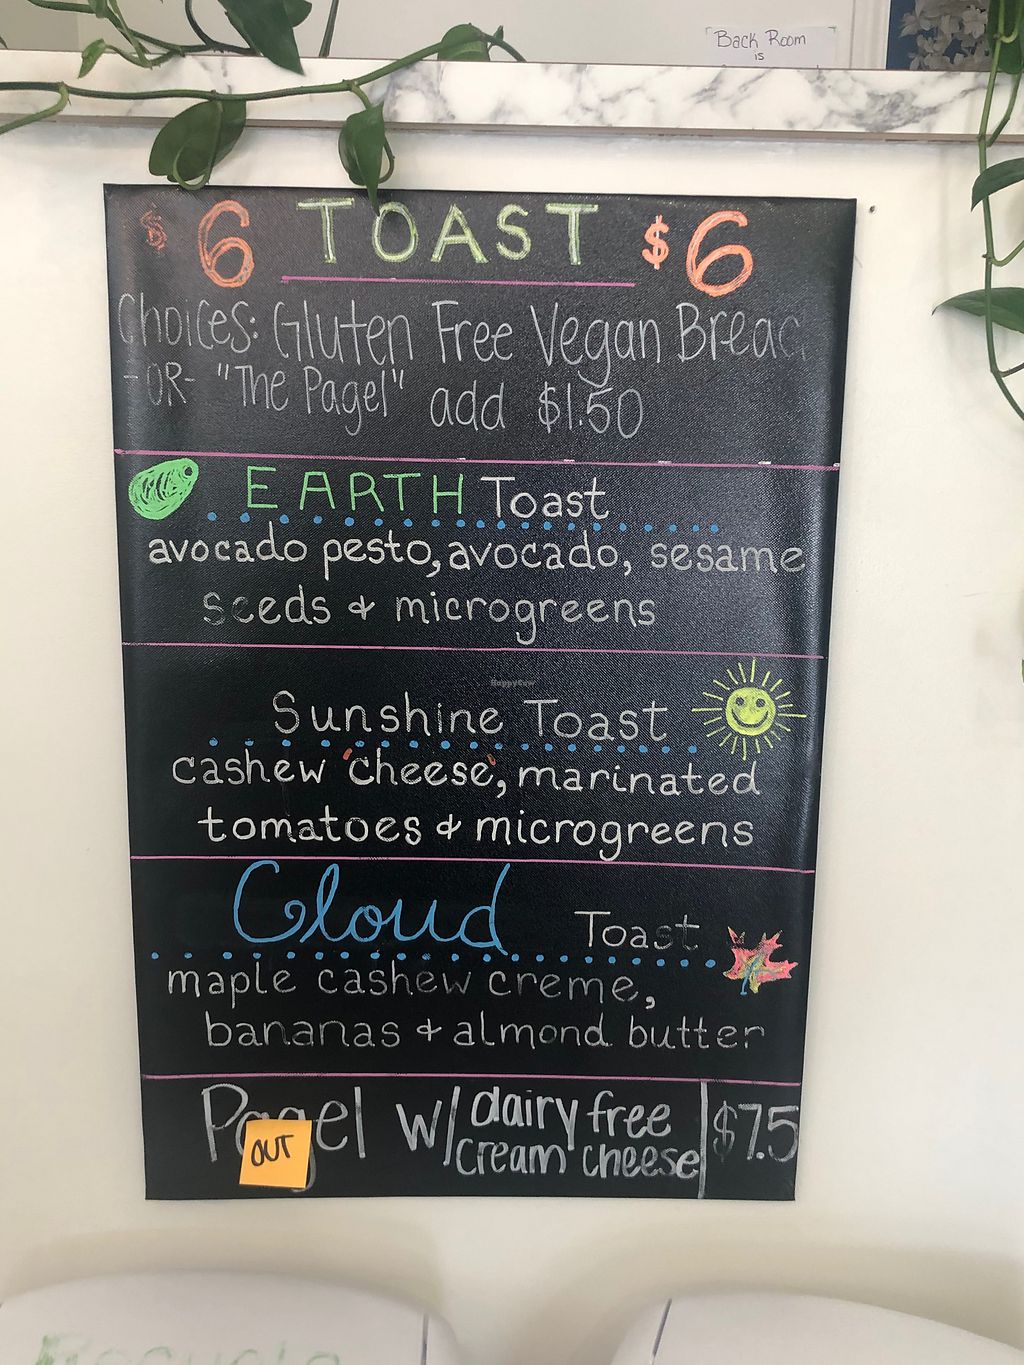 Back Room
is
$6 TOAST $6
Choices: Gluten Free Vegan Bread
-OR- "The Pagel" add $1.50
EARTH Toast
avocado pesto, avocado, sesame
seeds & microgreens
HappyCow
Sunshine Toast
cashew 'cheese', marinated
tomatoes & microgreens
Cloud Toast
maple cashew creme,
bananas & almond butter
Pagel w/ dairy free
cream cheese
$7.5
OUT